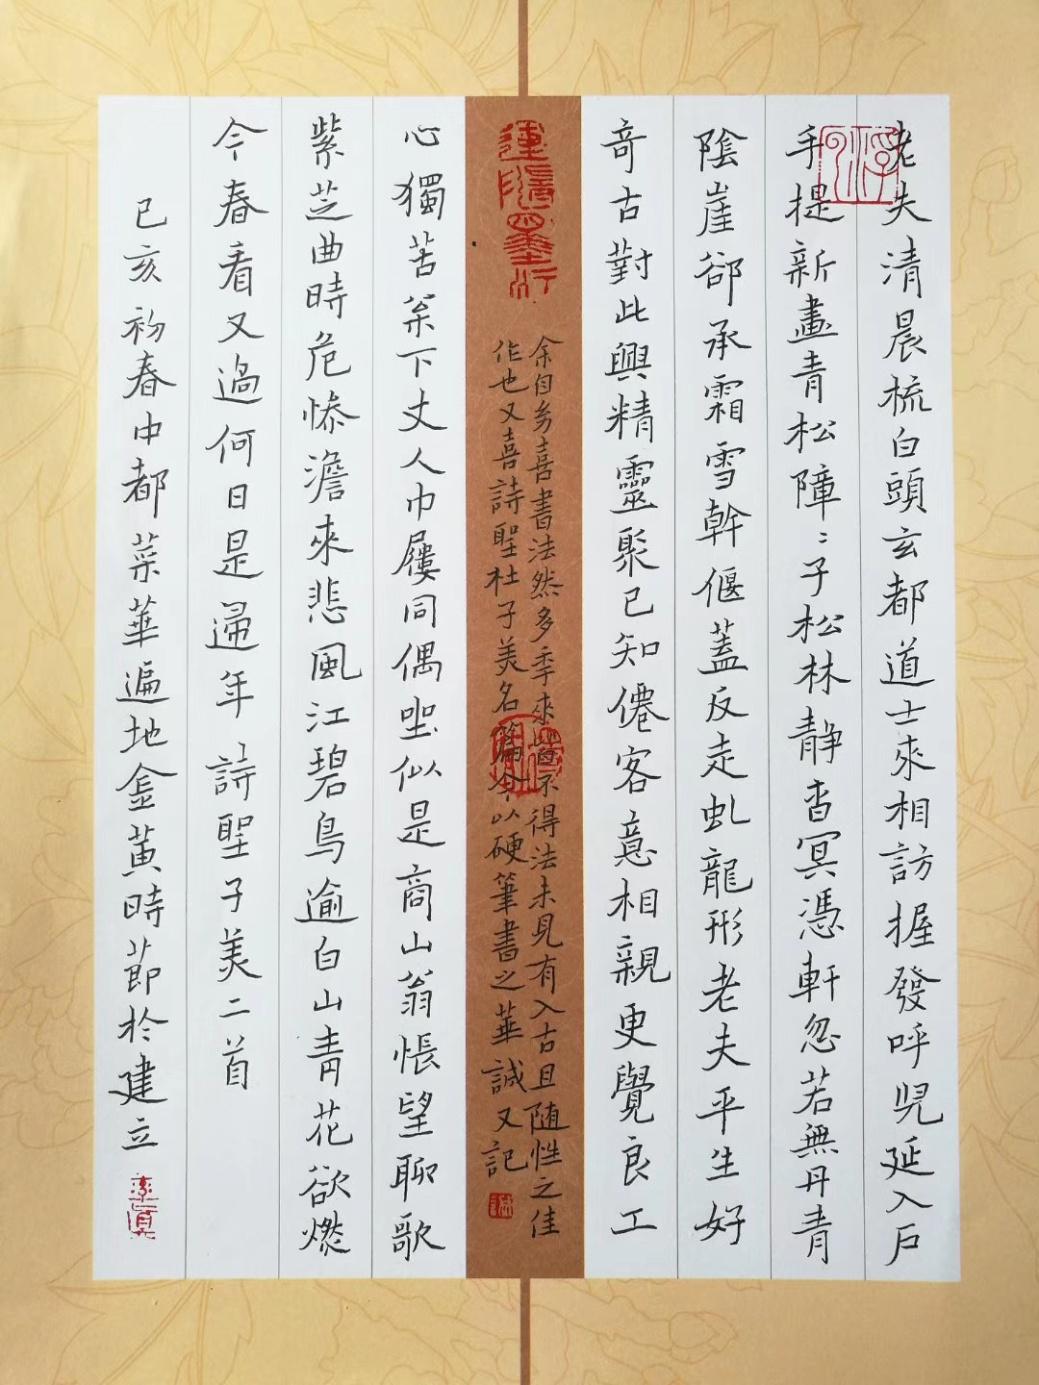 老夫清晨梳白頭玄都道士來相訪握發呼児延入戶
手提新畫青松障〻子松林静杳冥憑軒忽若無丹青
陰崖郤承霜雪幹偃蓋反走虬龍形老夫平生好
竒古對此興精靈聚已知僊客意相親更覺良工
余自幼喜書法然多季來皆不得法未見有入古且随性之佳
作也又喜詩聖杜子美名篇今以硬筆書之華誠又記
心獨苦枀下丈人巾屨同偶坐似是商山翁悵望聊歌
紫芝曲時危慘澹來悲風江碧鳥逾白山青花欲燃
今春看又過何日是歸年詩聖子美二首
己亥初春中都菜華遍地金黄時節於建立